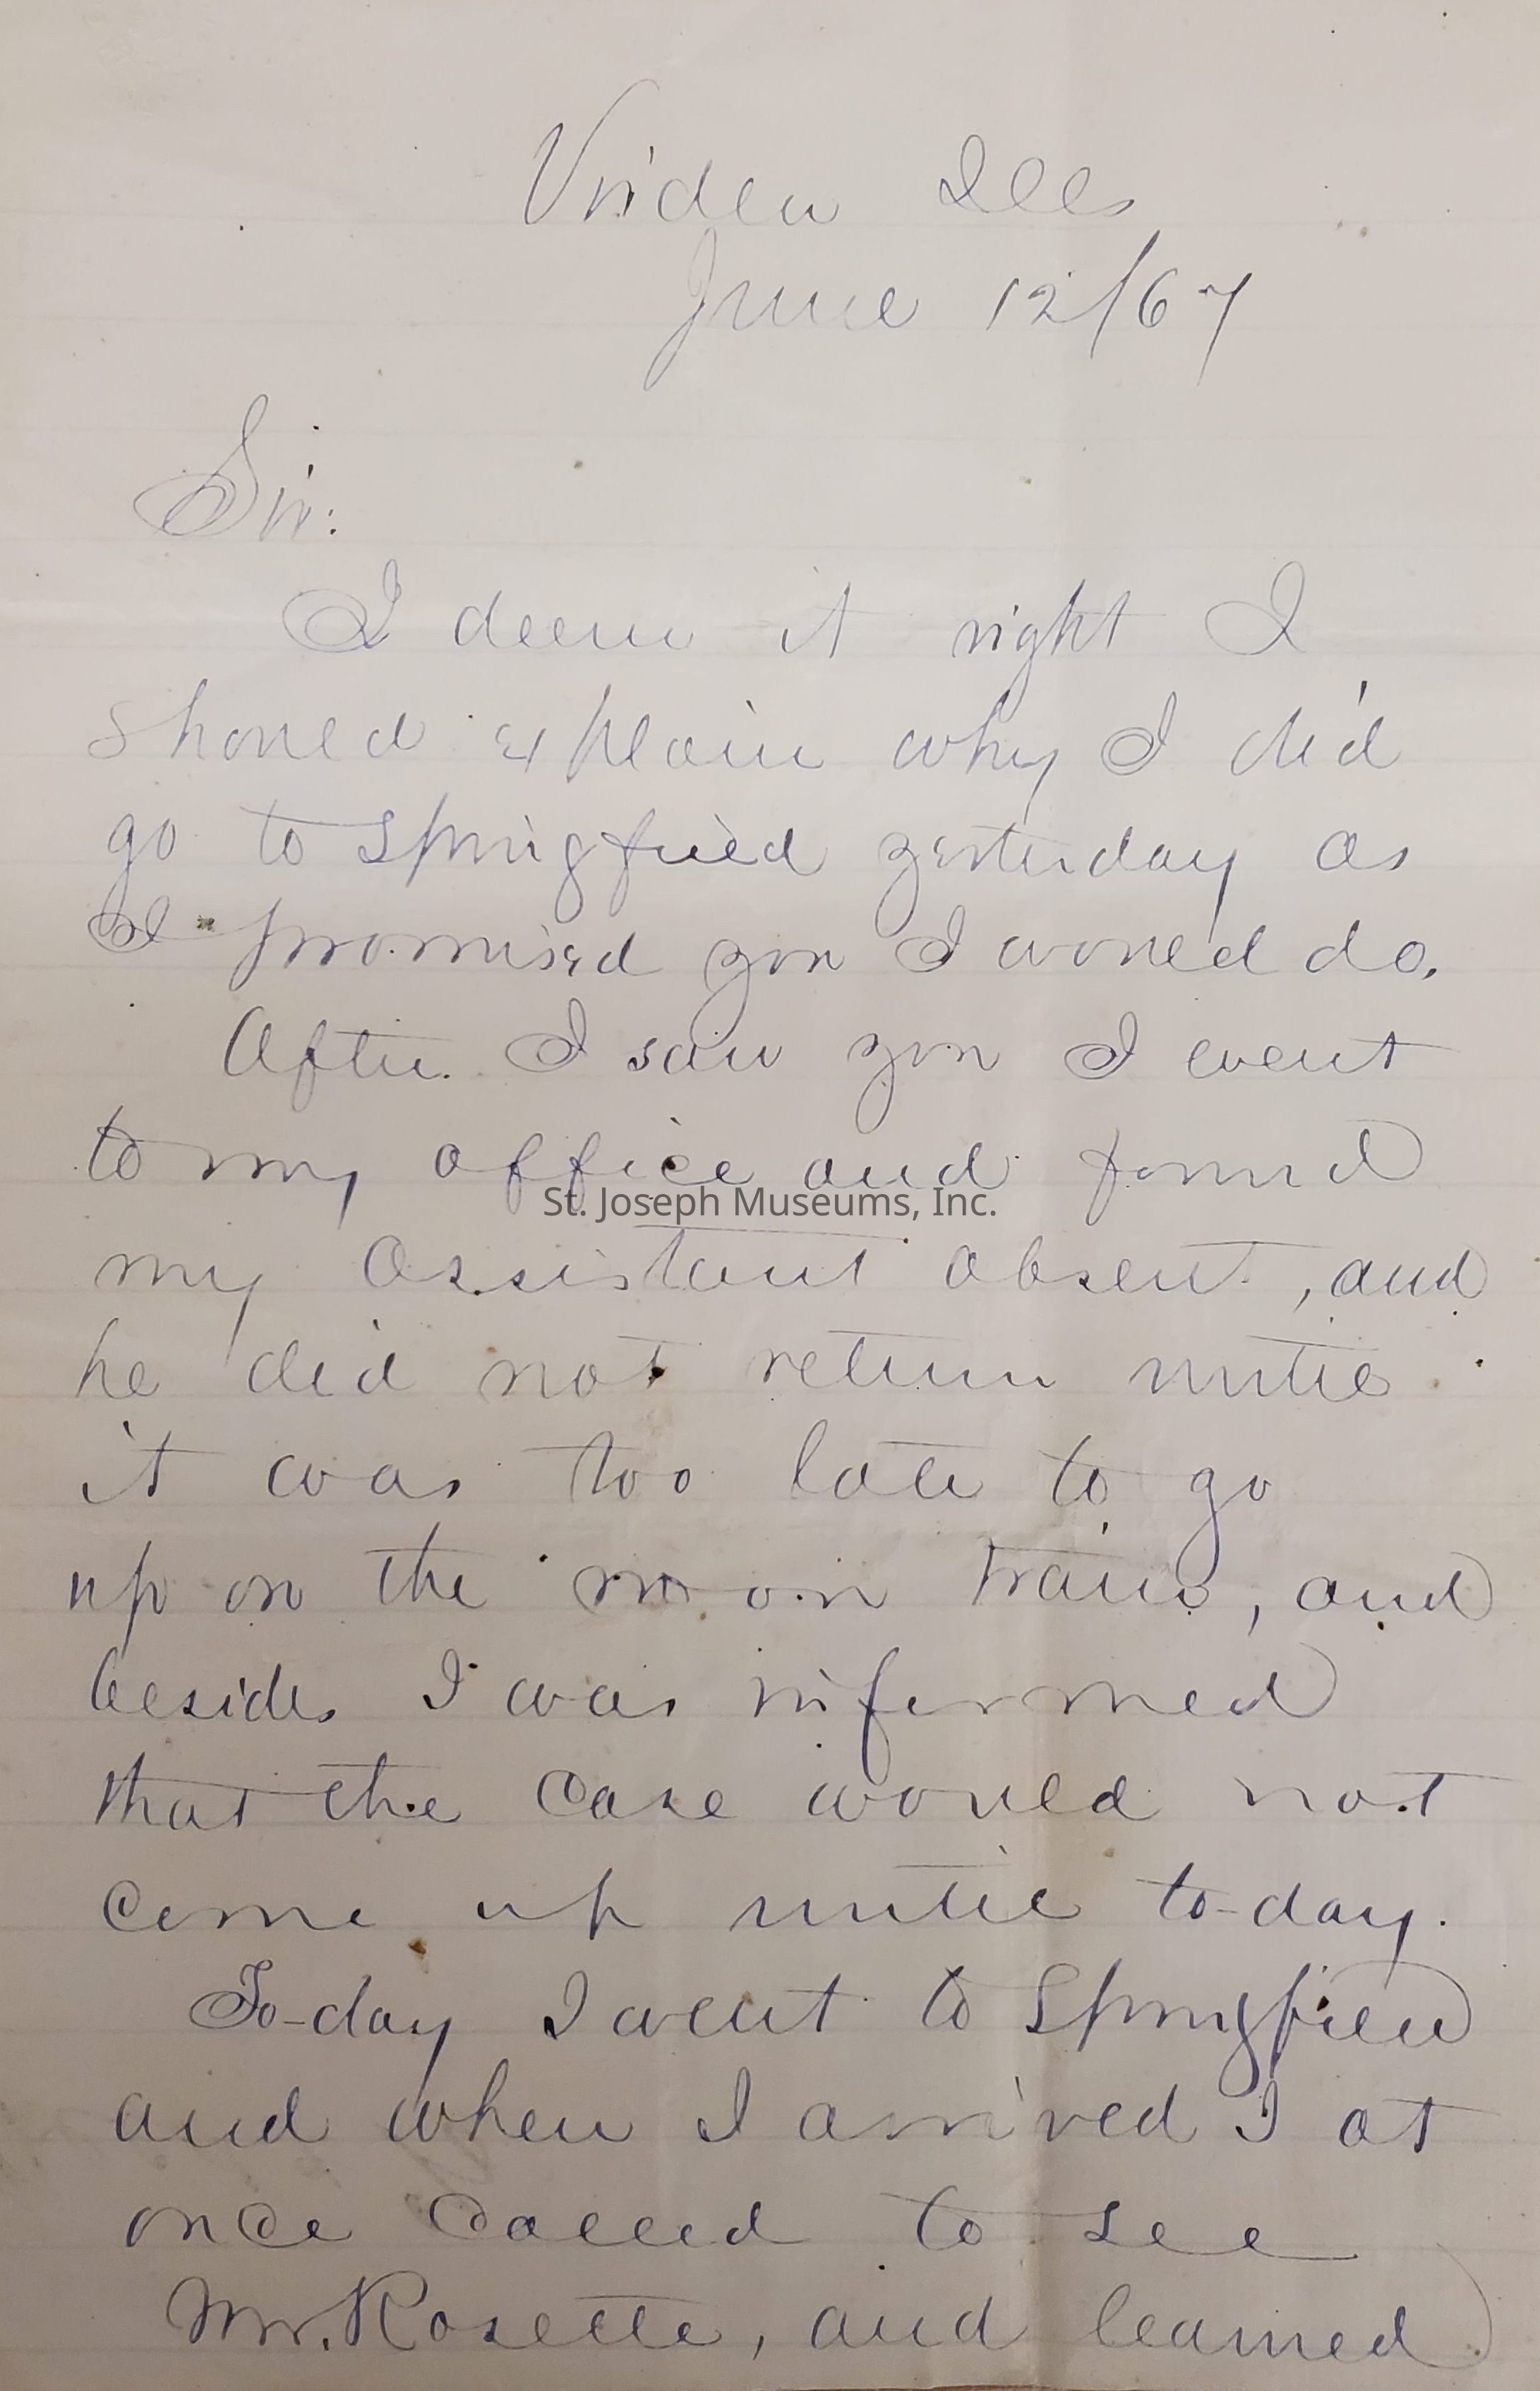 Virden Ills
June 12/67
Sir:
I deem it right I
should explain why I did
go to Springfield yesterday as
I promised you I would do.
After I saw you I went
to my office and found
St. Joseph Museums, Inc.
my assistant absent, and
he did not return until
it was too late to go
up on the train, and
besides I was informed
that the case would not
come up until to-day.
To-day I went to Springfield
and when I arrived I at
once called to see
Mr. Rosette, and learned